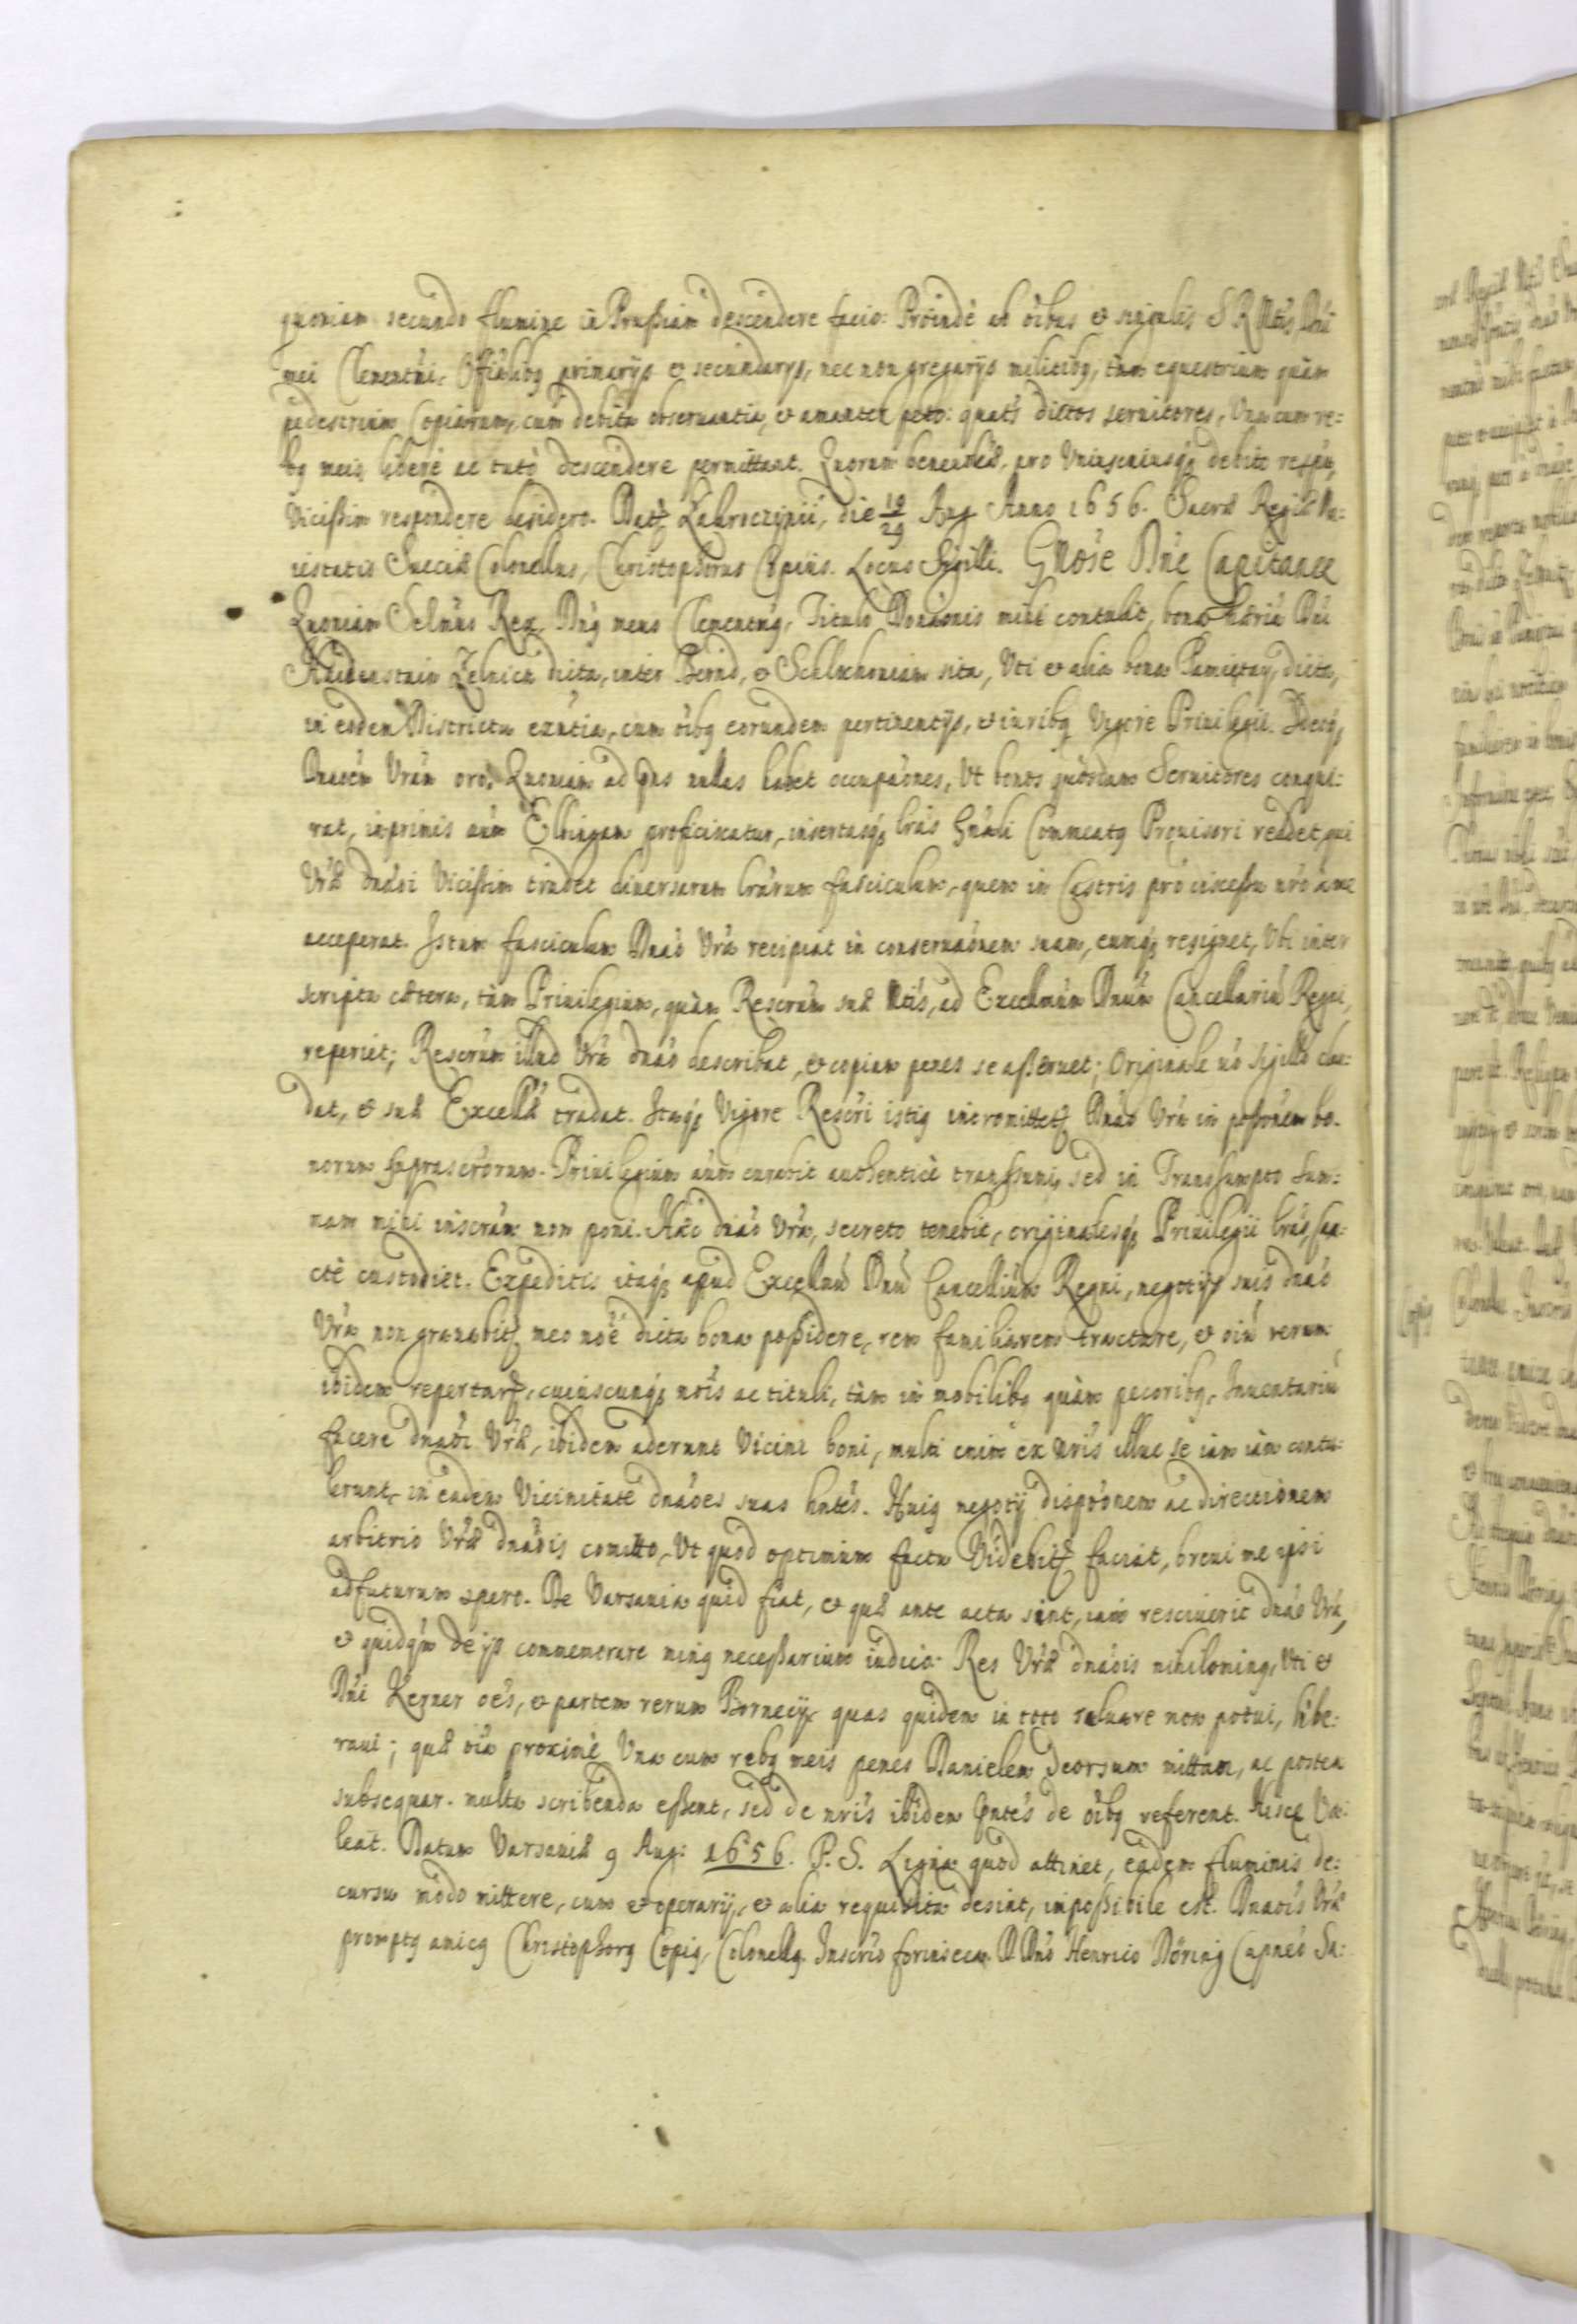 quoniam secundo flumine in Prußiam descendere facio: Proinde ab oibus et singulis S R Mtis Dni
mei Clementmi, Offialibq primarijs et secundarijs, nec non gregarijs militibq, tàm equestrium quàm
pedestrium Copiarum, cum debita obseruantia, et amanter peto: quats dictos seruitores, Una cum re=
bq meis liberè ac tutò descendere permittant. Quorum beneuolae, pro Uniuscuiusq debito respu,
Vicißim respondere desidero. Datt Zakroczymi, die 19/29 Aug Anno 1656. Sacrae Regiae Ma=
iestatis Sueciae Colonellus, Christophorus Copius. Locus Sigilli. Gnose Dne Capitanee
Quoniam Selmus Rex Dnq meus Clementmq, Titulo Donaonis mihi contulit, bona hdria Dni
Zelnica dicta, inter et Schlochouiam sita, Uti et alia bona Pamiętay, dicta,
in eodem Districtu exntia, cum oibq eorundem pertinentijs, et iuribq Vigore Priuilegii. Ideoq
Dnaoem Vram oro, Quoniam ad pns nullas habet occupaones, Ut bonos quosdam Seruitores conqui=
rat, inprimis aum Elbingam proficiscatur, insertasq lras Gnali Commeatq Prouisori reddet, qui
Vrae dnaoi Vicißim tradet diuersarum lrarum fasciculum, quem in Castris pro discessu nro a me
acceperat. Istum fasciculum Dnao Vra recipiat in conseruaonem suam, eumq resignet, Ubi inter
scripta caetera, tàm Priuilegium, quàm Rescrum suae Mtis, ad Excelmum Dnum Cancellariu Regni,
reperiet; Rescrum illud Vra dnao describat, et copiam penes se aßeruet; Originale uo sigillo clau=
dat, et suae Excellae tradat. Itaq Vigore Rescri istiq intromittetr Dnao Vra in poßonem bo=
norum suprascrorum. Priuilegium aum curabit authenticè transsumi, sed in Transsumpto Sum=
mam mihi inscram non poni. Haec dnao Vra, secreto tenebit, originalesq Priuilegii lras, san=
ctè custodiet. Expeditis itaq apud Excellmu Dnu Cancellium Regni, negotijs suis dnao
Vra non grauabitr meo noe dicta bona poßidere, rem familiarem tractare, et oiu rerum
ibidem repertar, cuiuscunq nois ac tituli, tàm in mobilibq quàm pecoribq, Inuentariu
facere dnaoi Vrae, ibidem aderunt Vicini boni, multi enim ex nris illuc se iam iam contu=
lerunt, in eadem Vicinitate dnaoes suas hntes. Huiq negotij dispoonem ac direccionem
arbitrio Vrae dnaois comitto, Ut quod optimum factu Videbitr faciat, breui me ipsi
adfuturum spero. De Varsauia quid fiat, et quae ante acta sint, iam resciuerit dnao Vra,
et quidqm de ijs commemorare minq neceßarium iudico. Res Vrae dnaois nihilominq, Uti et
Dni Kerner oes, et partem rerum quas quidem in toto saluare non potui, libe=
raui; quae oia proximè Una cum rebq meis penes Danielem deorsum mittam, ac postea
subsequar. multa scribenda eßent, sed de nris ibidem pntes de oibq referent. Hisce Va=
leat. Datum Varsauiae 9 Aug: 1656. P. S. Ligna quod attinet, eadem fluminis de=
cursu modo mittere, cum et operarij, et alia requisita desint, impoßibile est. Dnaois Vrae
promptq amicq Christophorq Copiq, Colonellq. Inscrio forinseca. D Dno Henrico Döring Capneo Sa: